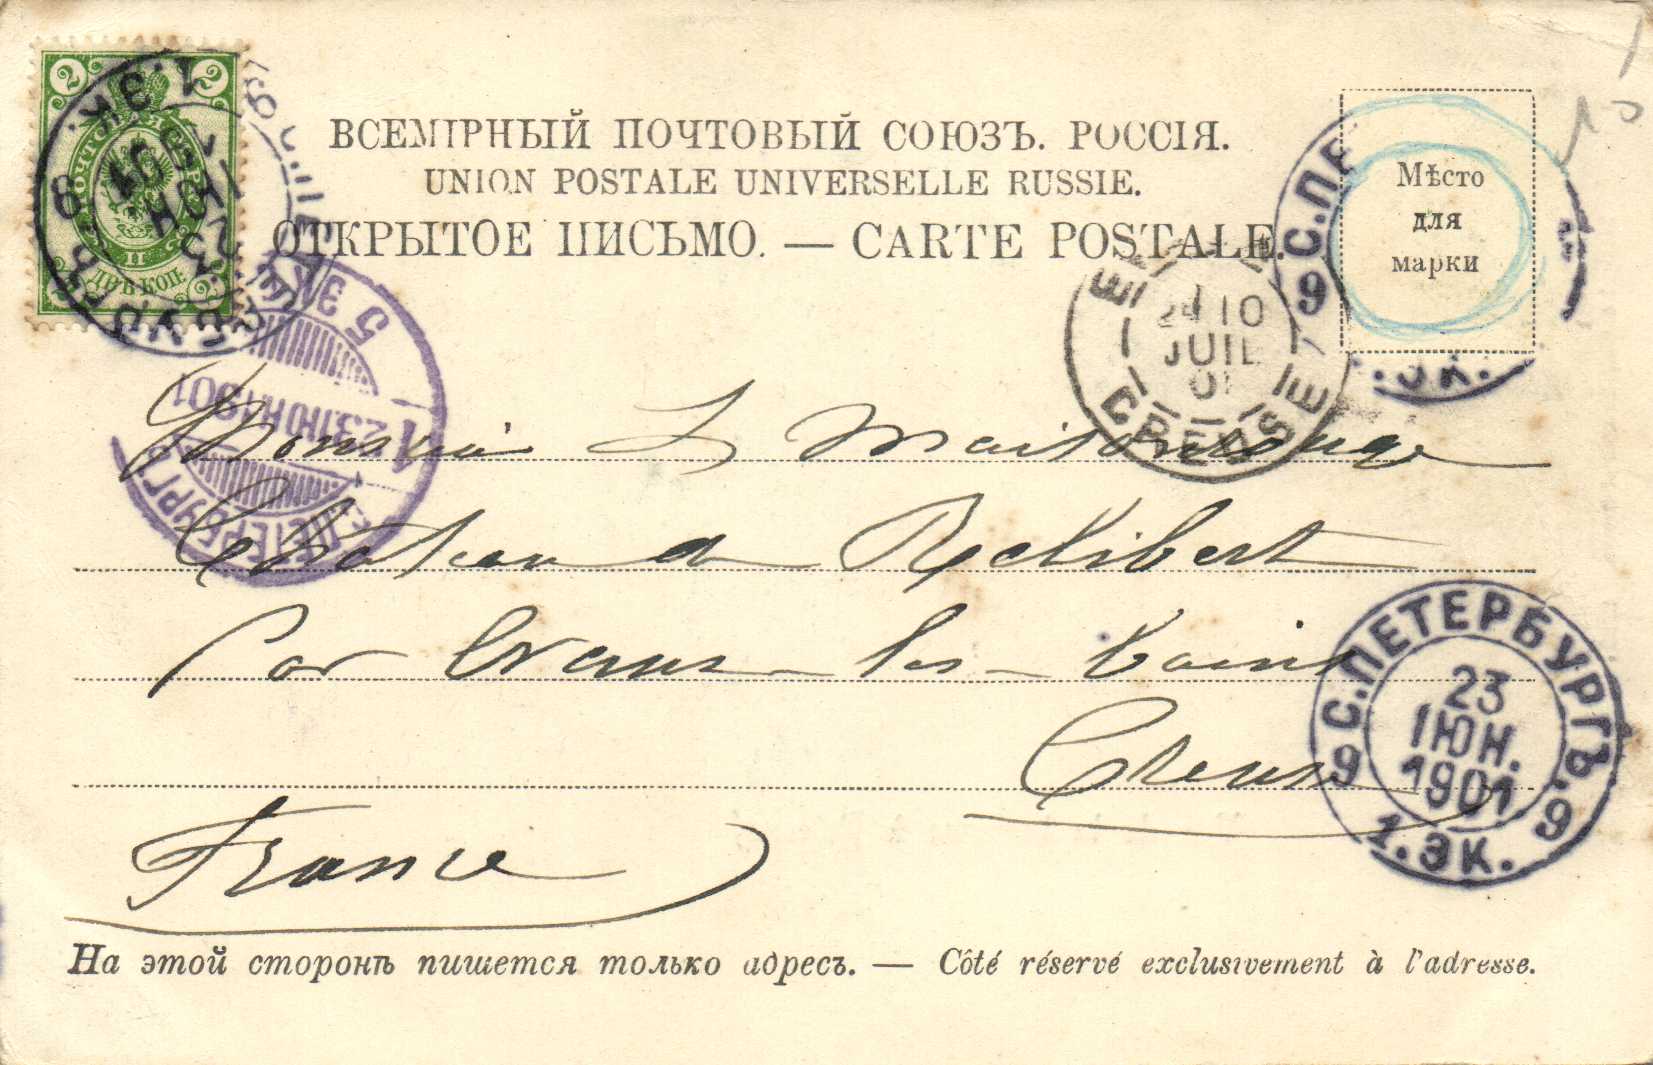 ВСЕМІРНЫЙ ПОЧТОВЫЙ СОЮЗЪ. РОССІЯ.
UNION POSTALE UNIVERSELLE RUSSIE.
ОТКРЫТОЕ ПИСЬМО. — CARTE POSTALE.
Мѣсто
для
марки
2 2
ДВѢ КОП.
5 ЭКС
23 ІЮН 1901
ПЕТЕРБУРГЪ
24 10
JUIL
01
CREUSE
С.ПЕ
9
ЭК.
Monsieur L Maisonrouge
Chateau de
par Evaux-les-bains
Creuse
France
С.ПЕТЕРБУРГЪ.
23
ІЮН.
1901
9 9
1.ЭК.
На этой сторонѣ пишется только адресъ. — Côté réservé exclusivement à l'adresse.